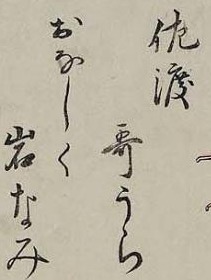 佐渡
哥うら
おなしく
岩なみ